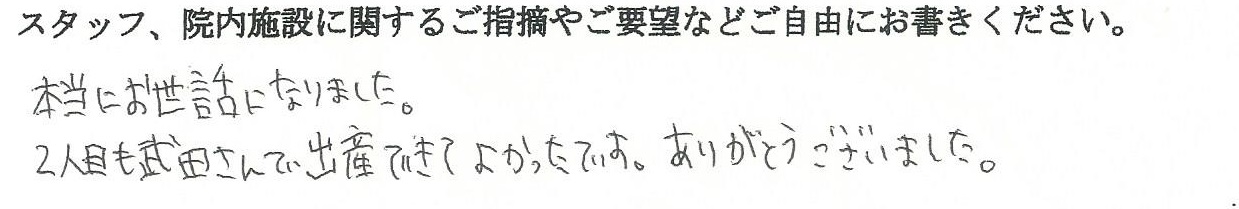 スタッフ、院内施設に関するご指摘やご要望などご自由にお書きください。
本当にお世話になりました。
2人目も武田さんで出産できてよかったです。ありがとうございました。